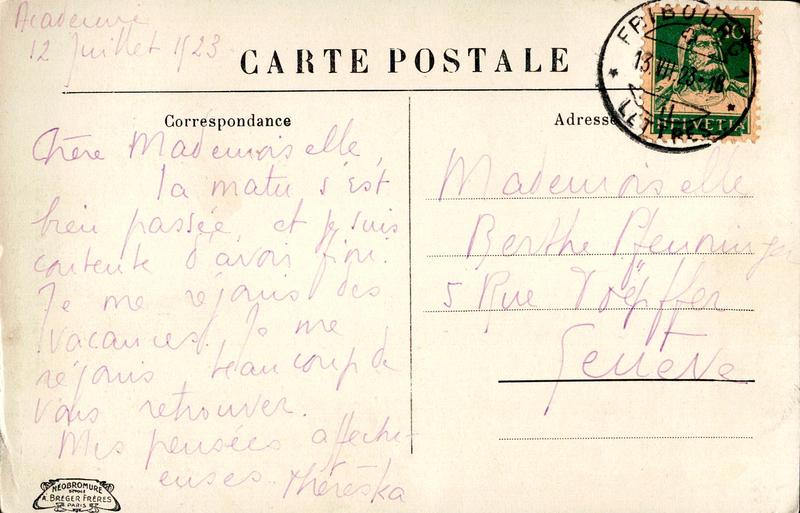 Academie
12 Juillet 1923
CARTE POSTALE
Correspondance
Adresse
FRIBOURG 1
13.VII.23-18
LETTRES
10
HELVETIA
Chère Mademoiselle,
la matu s'est
bien passée, et je suis
contente d'avoir fini.
Je me réjouis des
vacances. Je me
réjouis beaucoup de
vous retrouver.
Mes pensées affectu-
euses. Théréska
Mademoiselle
Berthe Pfenninger
5 Rue Töpffer
Genève
NÉOBROMURE
A. BREGER FRÈRES
PARIS